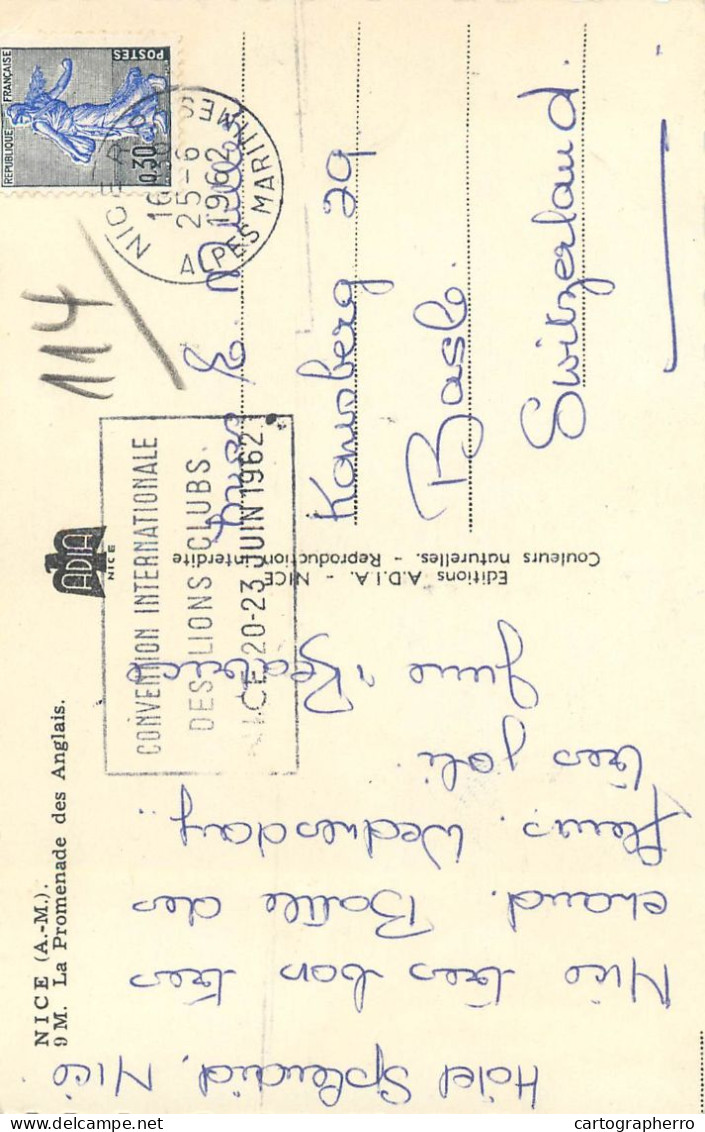 NICE (A.-M.).
9 M. La Promenade des Anglais.
ADIA
NICE
Hôtel Splendid, Nice
Nice très bon très
chaud. Bataille des
fleurs. Wednesday.
très joli.
June Beatrice
Editions A.D.I.A. - NICE
Couleurs naturelles. - Reproduction interdite
CONVENTION INTERNATIONALE
DES LIONS CLUBS
NICE 20-23 JUIN 1962
114
REPUBLIQUE FRANÇAISE
POSTES
0,30
NICE
25-6
1962
ALPES MARITIMES
E.
29
Basle.
Switzerland.
cartographerro